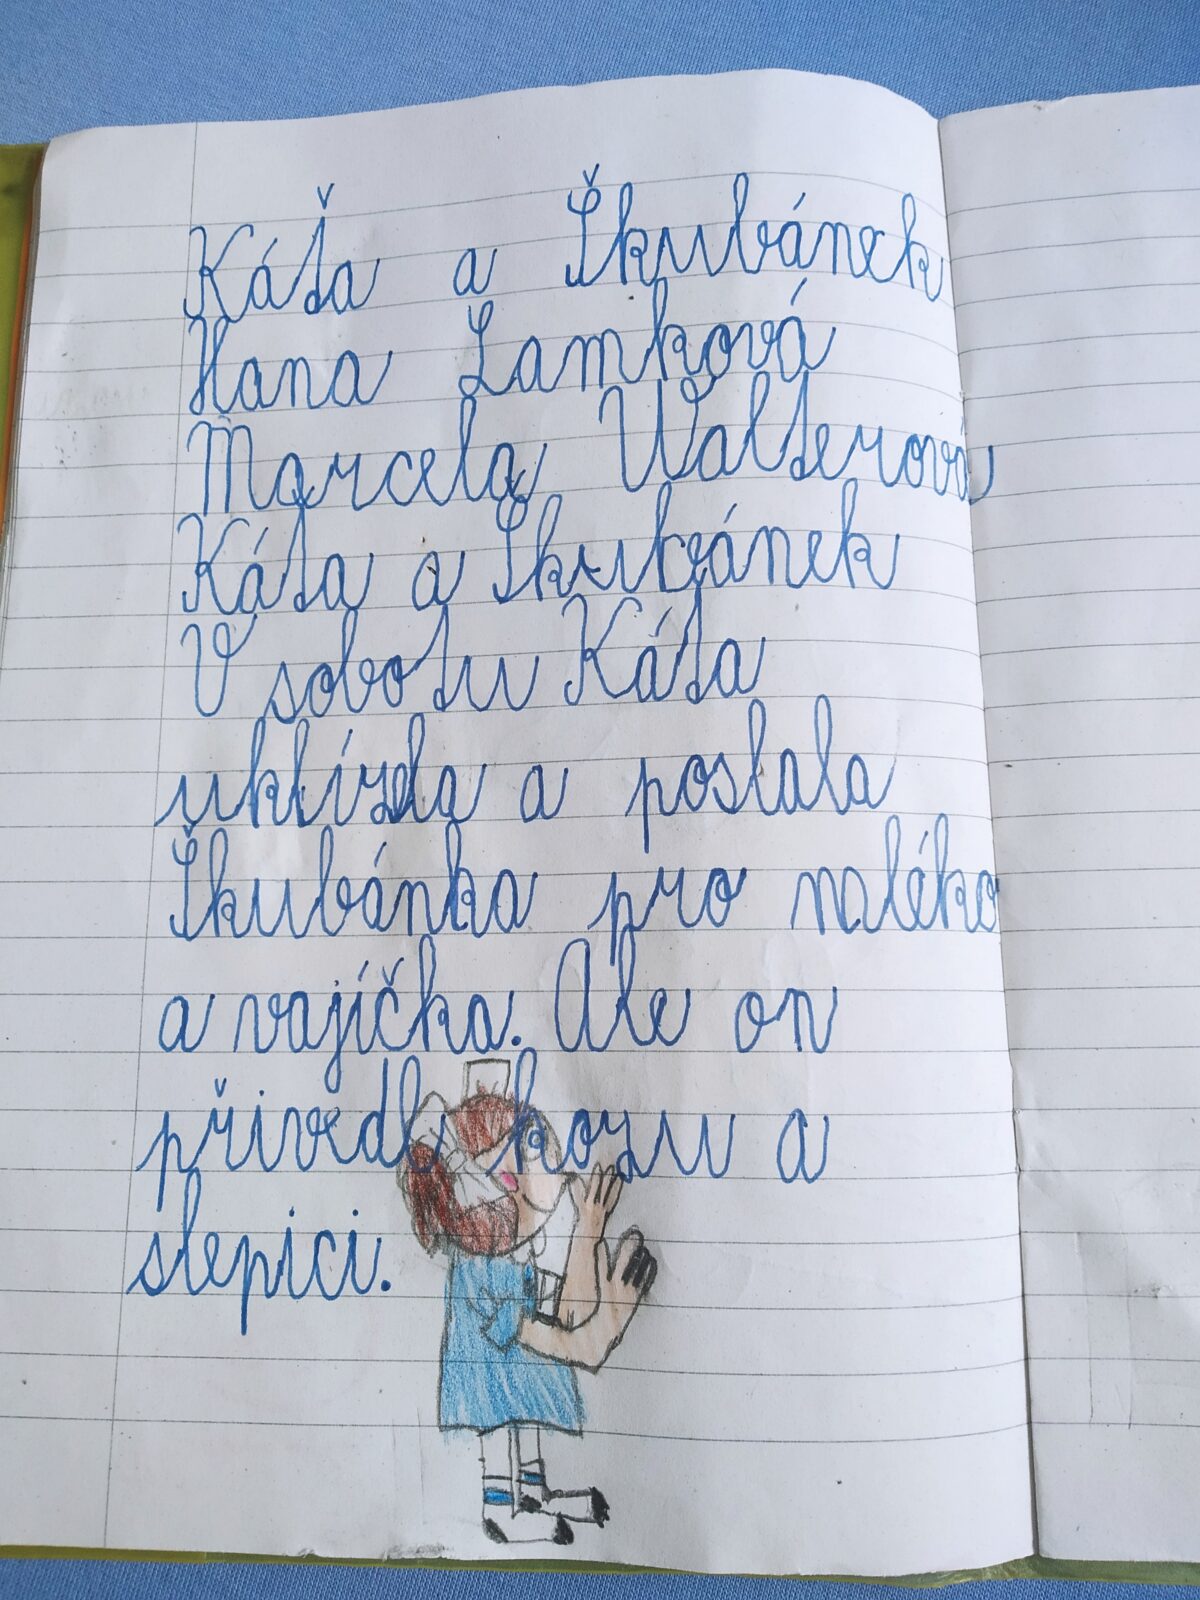 Káťa a Škubánek
Hana Lamková
Marcela Walterová
Káťa a Škubánek
V sobotu Káťa
uklízela a poslala
Škubánka pro mléko
a vajíčka. Ale on
přivedl kozu a
slepici.